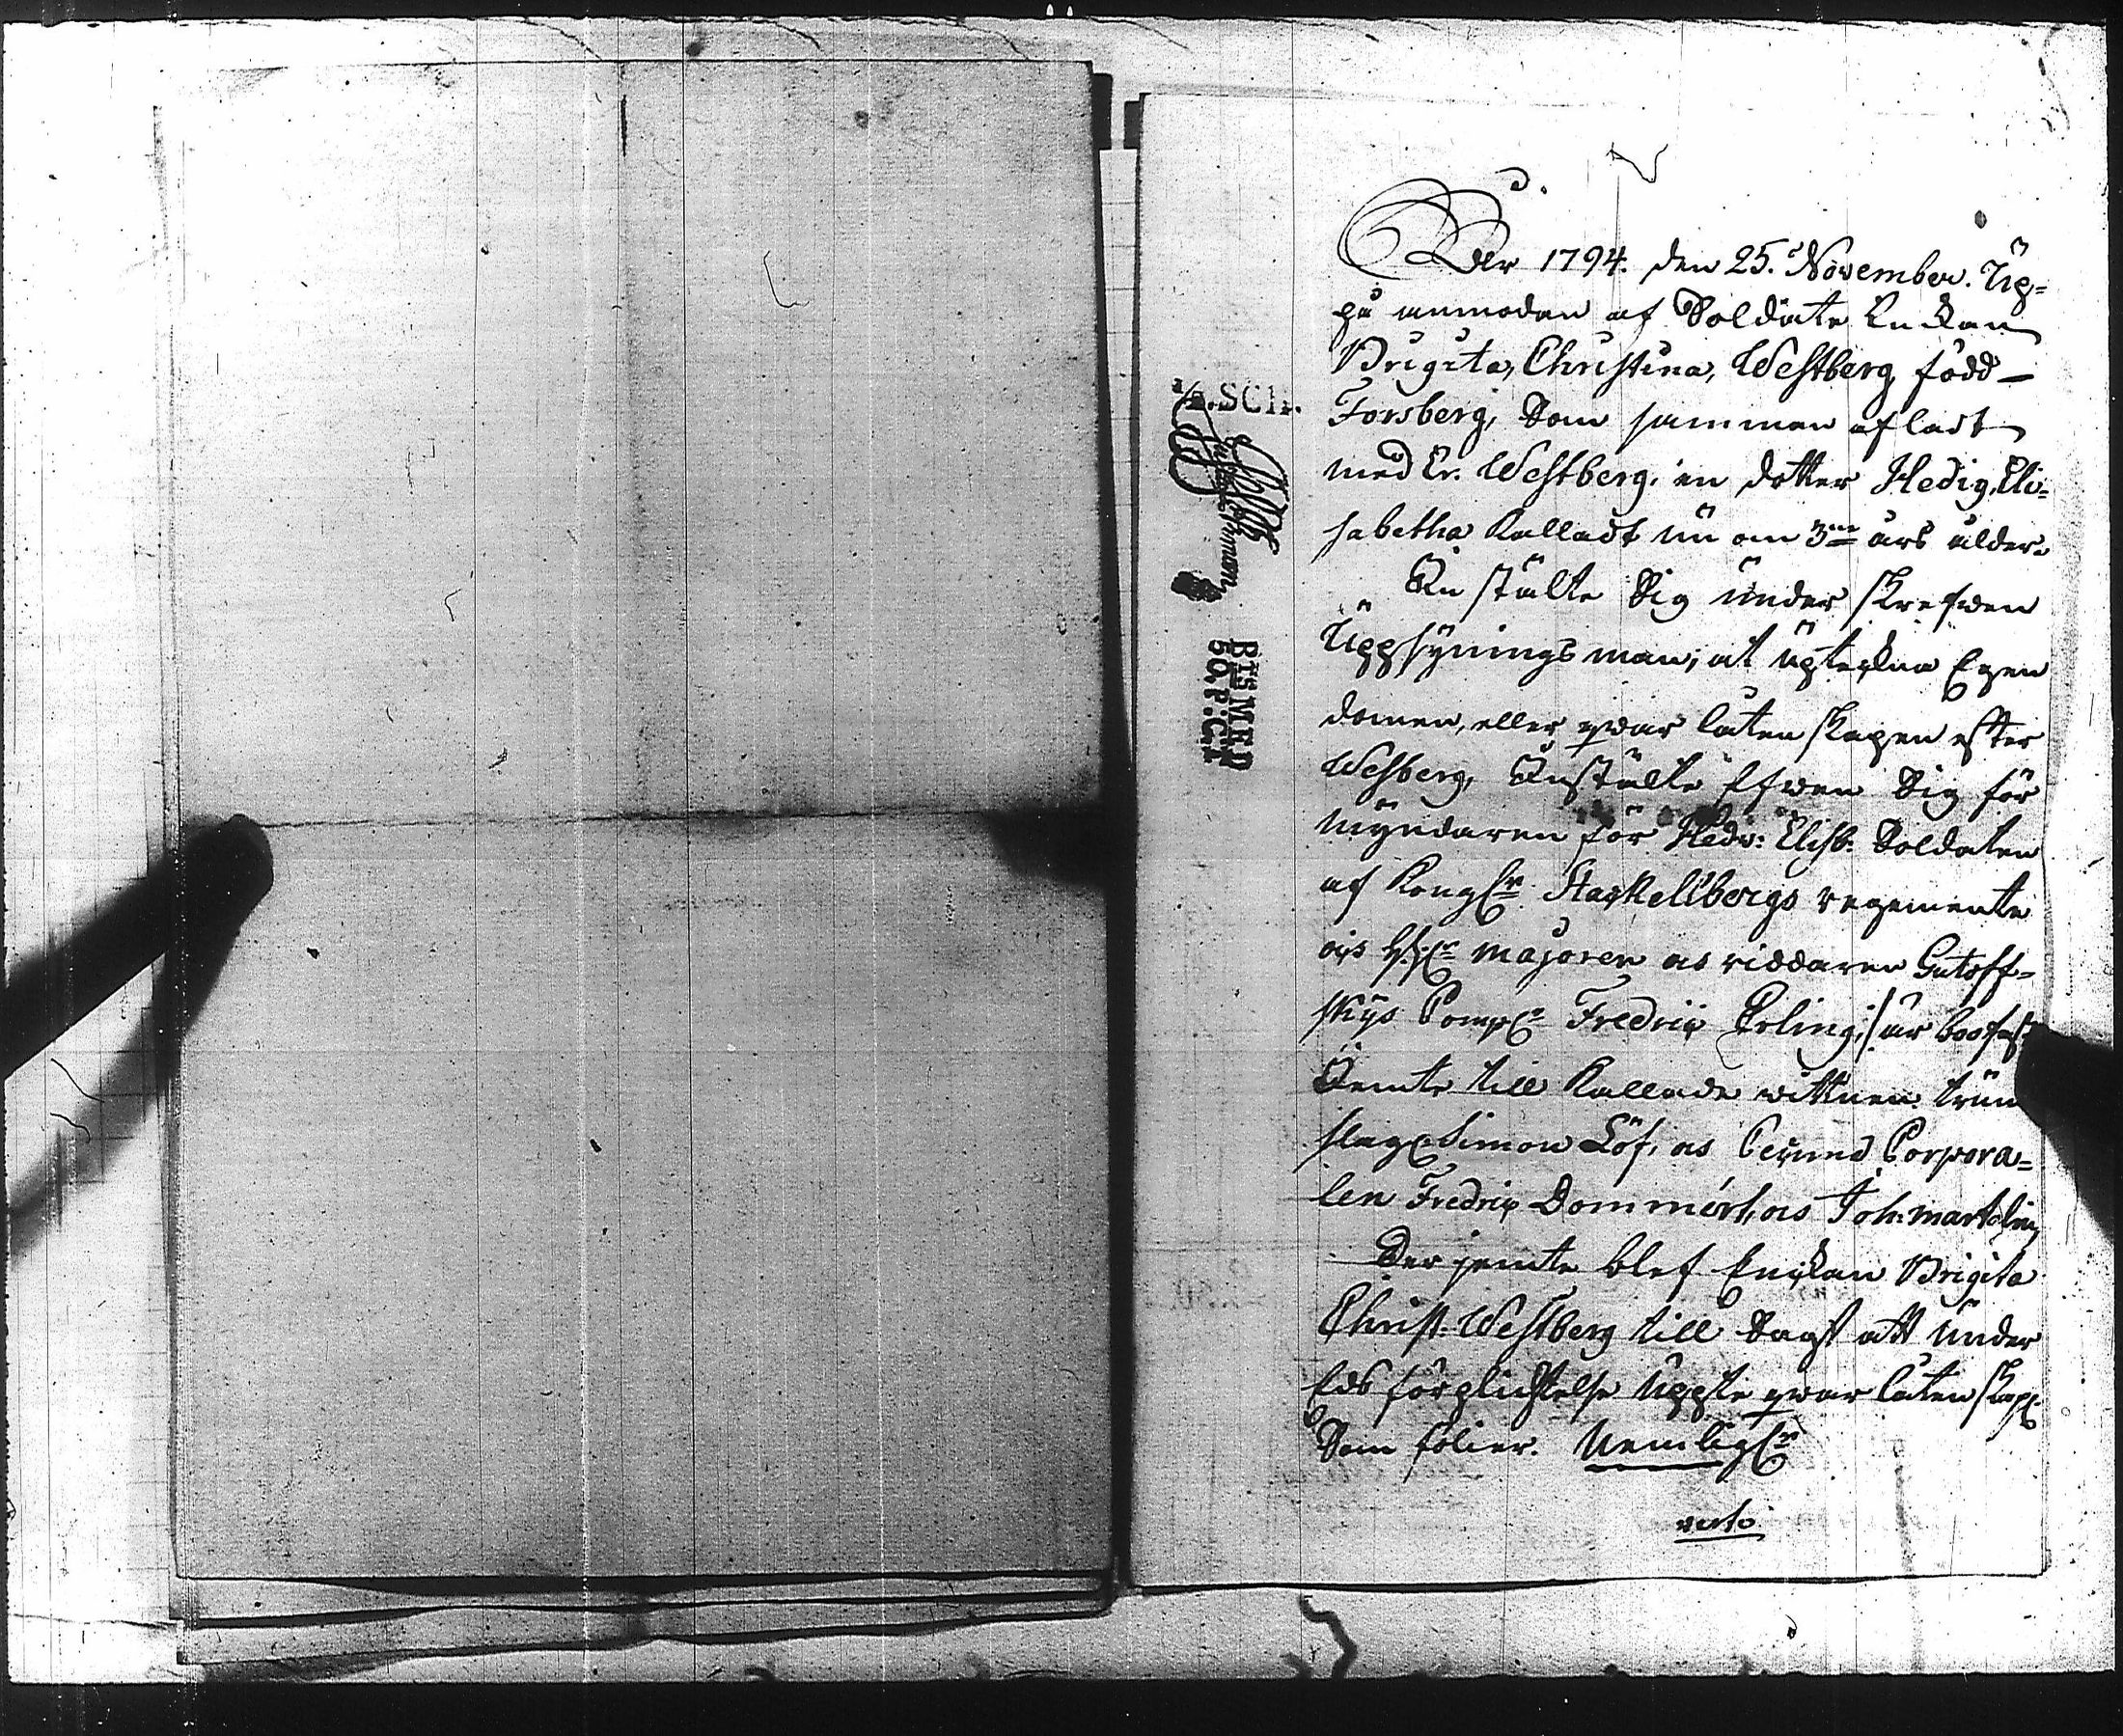 År 1794. den 25. November. Up=
på anmodan af Soldate Enckan
Brigita, Christina, Westberg född —
Forsberg, Som samman aflat
med Er. Westberg, en dotter Hedig, Eli=
sabetha Kallad nu om 3 års ålder.
In stälte Sig under skrefwen
Uppsyningsman, at upteckna Egen
domen, eller qwar låtenskapen efter
Wesberg, Instälte Efwen Sig för
myndaren för Hedv: Elisb. Soldaten
af Kongl. Stackellbergs regemente
och majoren och riddaren Gutoff=
skys Comp. Fredric Erling,
Jemte till Kallade wittnen. trum
slag. Simon Löf, och Corpora=
len Fredric Dommert, och Joh: Martelin
Der jemte blef Enckan Brigita
Christ. Westberg till Sagt att under
Eds förplicktelse Uppte qwar låtenskap.
Som följer. Nemligen
verte
SCH.
BTS MED
50. P: Ct